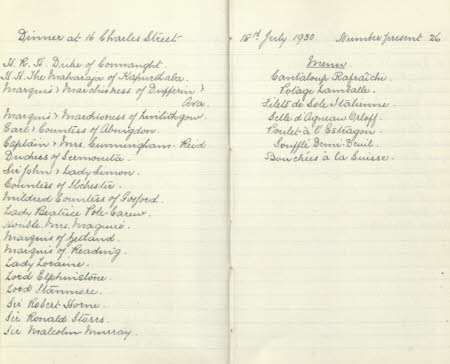 Dinner at 16 Charles Street
H. R. H. Duke of Connaught
H. H. The Maharaja of Kapurthala.
Marquis & Marchioness of Dufferin &
Ava.
Marquis & Marchioness of Linlithgow.
Earl & Countess of Abingdon.
Captain & Mrs. Cunningham-Reid
Duchess of Sermoneta.
Sir John & Lady Simon.
Countess of Ilchester.
Mildred Countess of Gosford.
Lady Beatrice Pole-Carew.
Honble. Mrs. Maguire.
Marquis of Zetland.
Marquis of Reading.
Lady Loraine.
Lord Elphinstone.
Lord Stanmore.
Sir Robert Horne.
Sir Ronald Storrs.
Sir Malcolm Murray.
18th July 1930 Number present 26
Menu.
Cantaloup Rafraîchi
Potage Lamballe.
Filets de Sole Italienne.
Selle d'Agneau Orloff.
Poulet à l'Estragon.
Soufflé Demi-Deuil.
Bouchées à la Suisse.